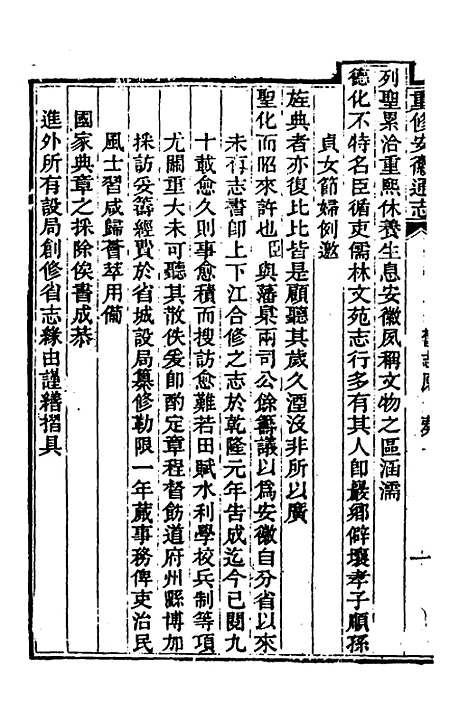 重修安徽通志
列聖累洽重熙休養生息安徽夙稱文物之區涵濡
德化不特名臣循吏儒林文苑志行多有其人卽最鄉僻壤孝子順孫
貞女節婦例邀
旌典者亦復比比皆是顧聽其歲久湮沒非所以廣
聖化而昭來許也臣與藩臬兩司公餘籌議以爲安徽自分省以來
未有志書卽上下江合修之志於乾隆元年告成迄今已閱九
十載愈久則事愈積而搜訪愈難若田賦水利學校兵制等項
尤關重大未可聽其散佚爰卽酌定章程督飭道府州縣博加
採訪妥籌經費於省城設局纂修勒限一年蕆事務俾吏治民
風士習咸歸薈萃用備
國家典章之採除俟書成恭
進外所有設局創修省志緣由謹繕摺具